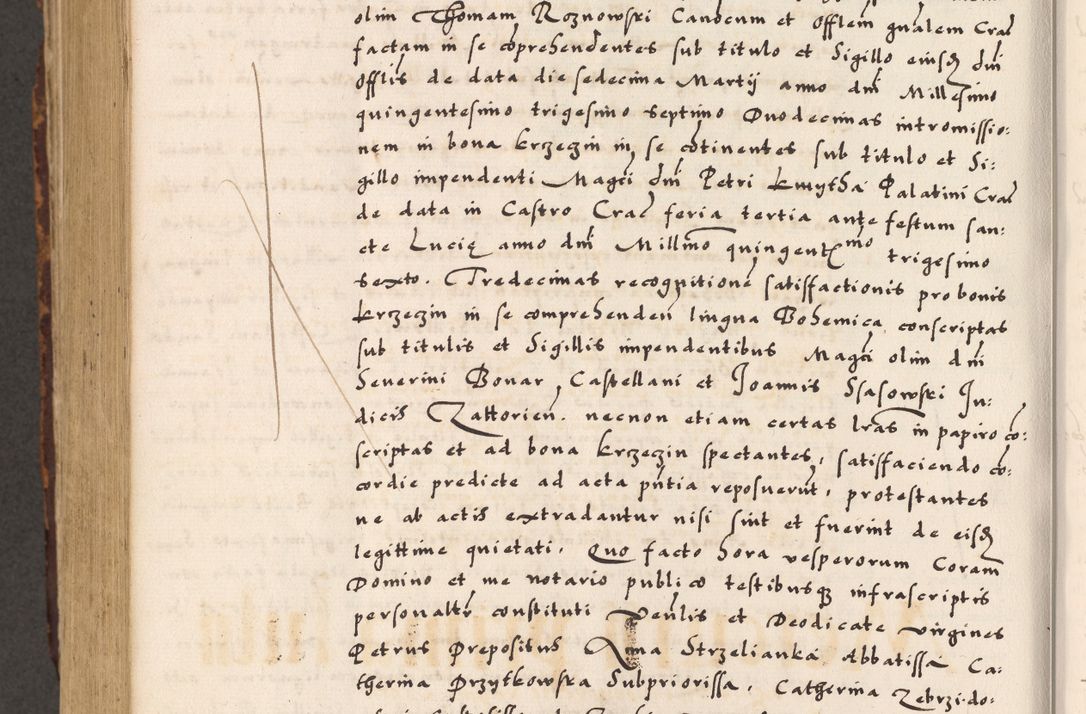 olim Thomam Roznowski Canõcum et Offlem gnãlem Crac̃
factam in se cõprehendentes sub titulo et Sigillo eiusdẽ dñi
Offlis de data die sedecima Martij anno dñi Millesimo
quingentesimo trigesimo septimo Duodecimas intromissio:
nem in bona Krzeczin in se cõtinentes sub titulo et Si:
gillo impendenti Magci dñi Petri Kmytha Palatini Crac̃
de data in Castro Crac̃ feria tertia ante festum san:
cte Lucię anno dñi Millmo quingentmo trigesimo
sexto. Tredecimas recognitionẽ satisfactionis pro bonis
Krzeczin in se comprehenden̄ lingua Bohemica conscriptas
sub titulis et Sigillis impendentibus Magci olim dñi
Severini Bonar, Castellani et Joannis Ssasowski Ju:
dicis Zattorien̄. necnon etiam certas lr̃as in papiro cõ:
scriptas et ad bona Krzeczin spectantes, satisfaciendo cõ:
cordie predicte ad acta pñtia reposuerũt, protestantes
ne ab actis extradantur nisi sint et fuerint de eisdẽ
legittime quietati, Quo facto hora vesperorum Coram
Domino et me notario publico testibusq; infrascriptis
personaltr̃ constituti Venlis et Deodicate virgines
Petrus Prepositus Anna Strzelianka Abbatissa Ca:
therina Przytkowska Subpriorissa, Catherina Zebrzido: